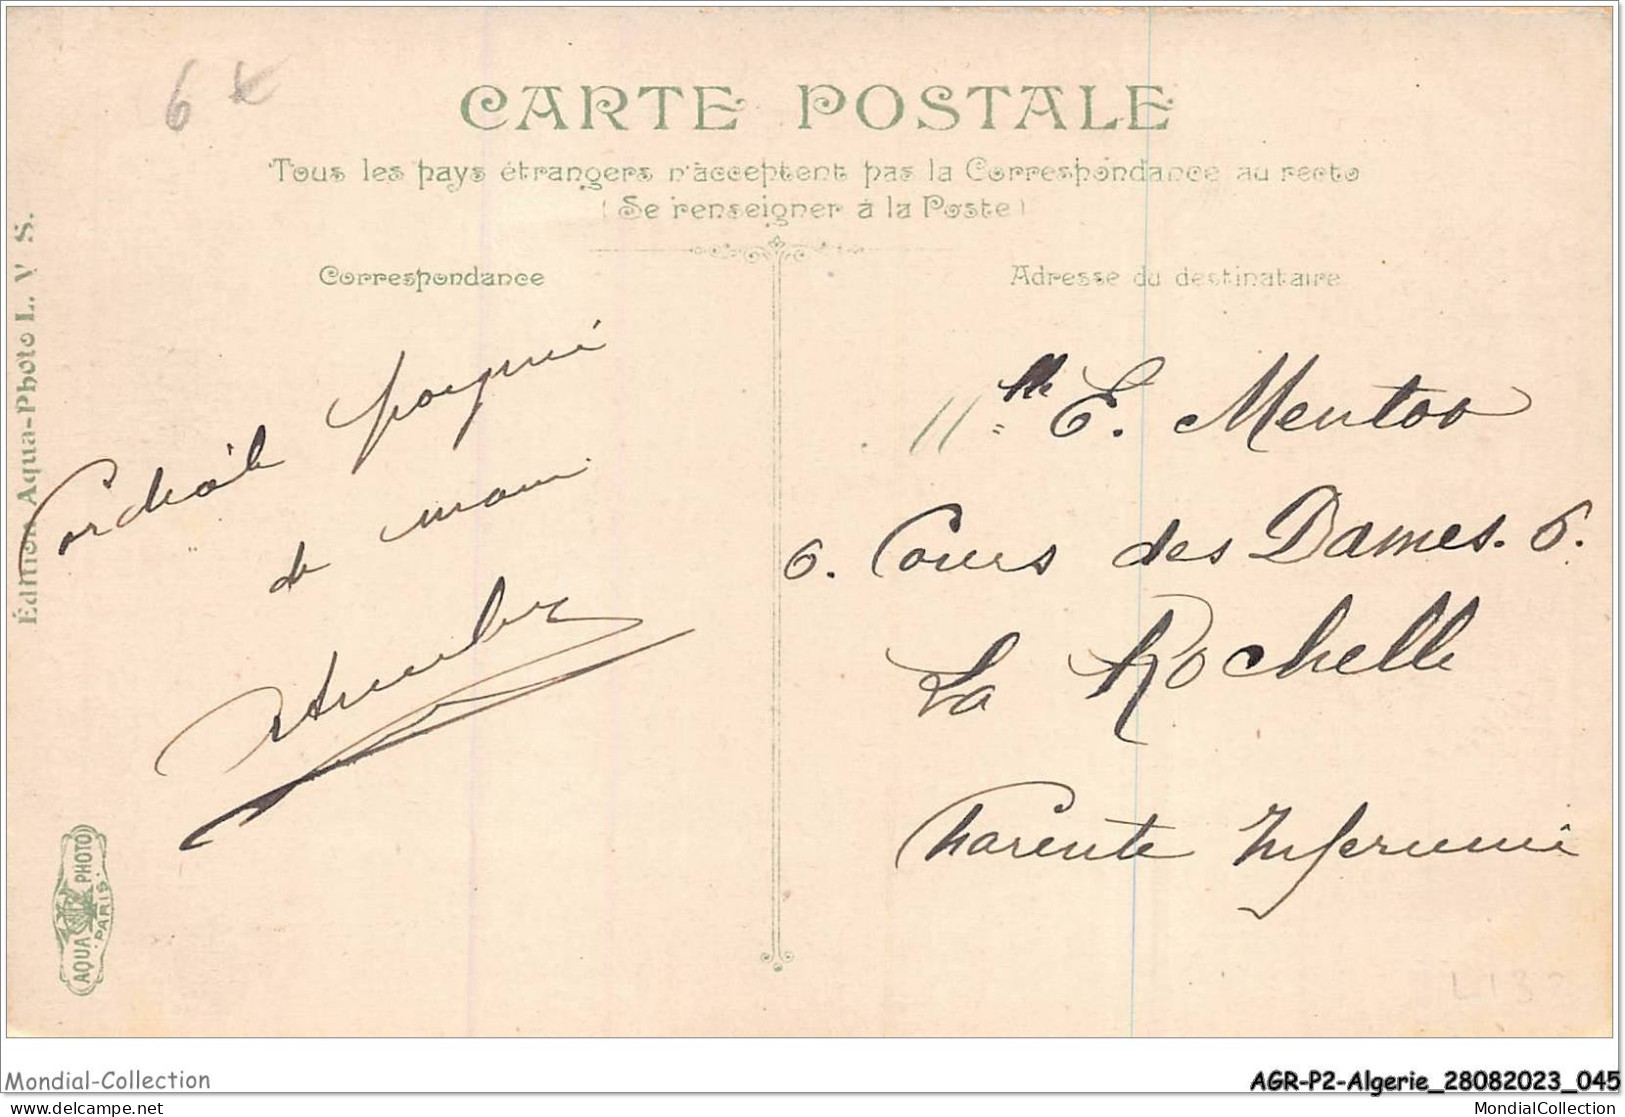 6 €
CARTE POSTALE
Tous les pays étrangers n'acceptent pas la Correspondance au recto
(Se renseigner à la Poste)
Correspondance
Cordiale poignée
de main
Adresse du destinataire
Mlle E. Mentoo
6. Cours des Dames. 6.
La Rochelle
Charente Inférieure
Édition Aqua-Photo L. V. S.
AQUA PHOTO
PARIS
L13
Mondial-Collection
AGR-P2-Algerie_28082023_045
www.delcampe.net
MondialCollection